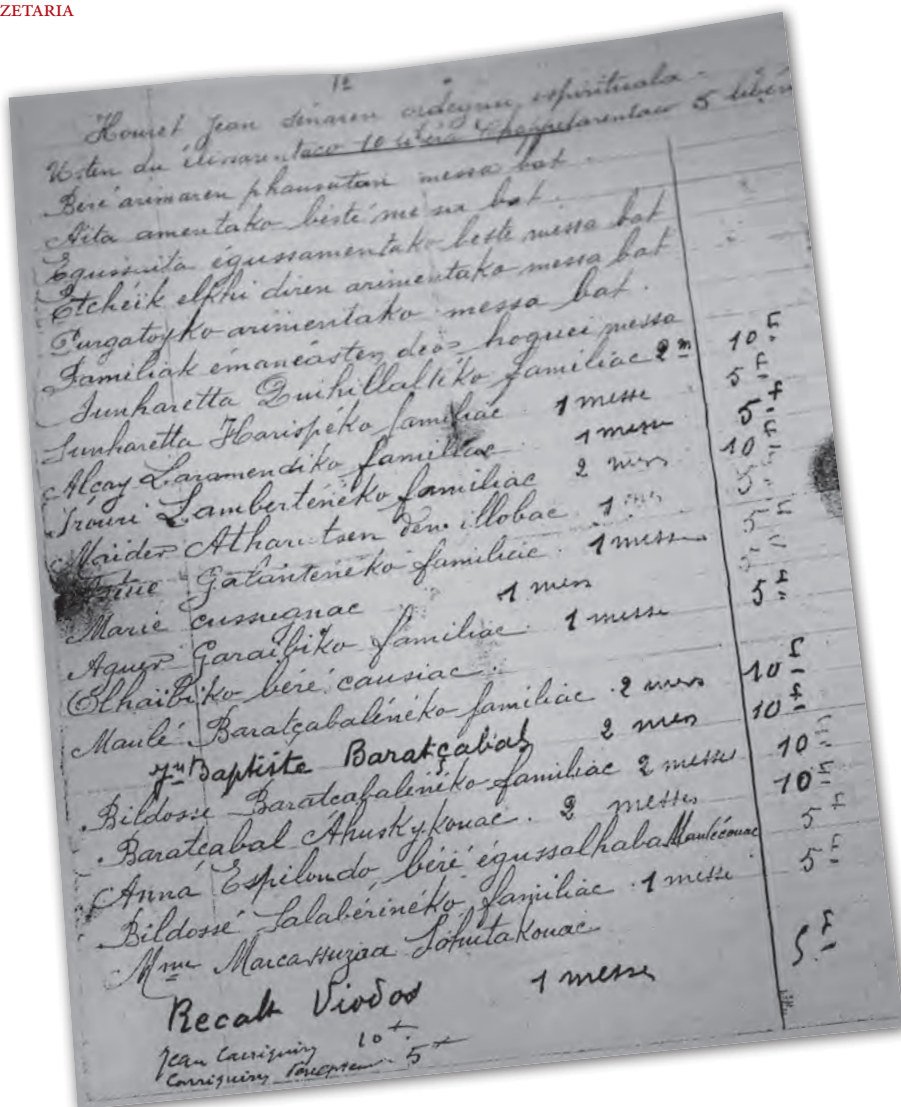 ZETARIA
1e
Houret Jean sinaren ordegnu espirituala.
Usten du élissarentaco 10 libéra Chappelarentaco 5 libéra
Béré arimaren phausutan messa bat.
Aita amentako besté messa bat.
Egussaita égussamentako beste messa bat
Etchéik elkhi diren arimentako messa bat
Purgatoyko arimentako messa bat.
Familiak émanéasten deos hoguei messa
Sunharetta Quihillaltéko familiac 2 m 10 F
Sunharetta Harispéko familiac 1 messe 5 F
Alçay Laramendiko familiac 1 messe 5 F
Irouri Lamberténéko familiac 2 mess 10 F
Maider Atharratsen den illobac 1 5
Galanténéko familiac 1 messe
Marie cussugnac 1 mess
Aguer Garaibiko familiac 1 messe 5 F
Olhaibiko béré causiac.
Maulé Baratçabalénéko familiac 2 mess 10 F
Jn Baptiste Baratçabal 2 mess 10 F
Bildosse Baratcabalénéko familiac 2 messe 10
Baratcabal Ahuskykouac. 2 messes 10 F
Anna Espilondo béré égussalhaba Maulécouac 5 F
Bildossé Salabérinéko familiac 1 messe 5 F
Mme Marcassuzaa
Recalt Viodos 1 messe 5 F
Jean Carriquiry 10 F
Carriquiry 5 F